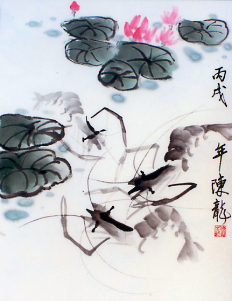 丙戌年陳龍